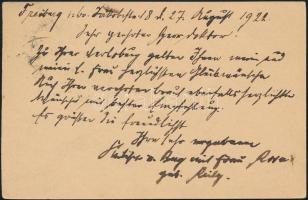 Freiburg i/Br. 18 d. 27. August 1922
Sehr geehrter Herr Doktor!
Zu Ihrer Verlobung gelten Ihnen mein und
meiner l. Frau herzlichsten Glückwünsche
Auch Ihrer verehrten Braut ebenfalls herzlichste
Wünsche mit bester Empfehlung.
Es grüßen Sie freundlichst
Ihr sehr ergebener
und Frau
geb.